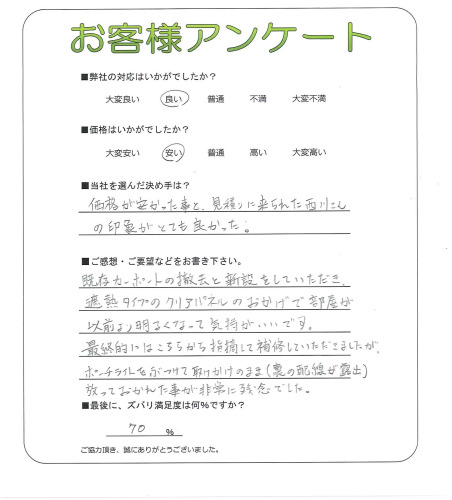 お客様アンケート
■弊社の対応はいかがでしたか？
大変良い 良い 普通 不満 大変不満
■価格はいかがでしたか？
大変安い 安い 普通 高い 大変高い
■当社を選んだ決め手は？
価格が安かった事と、見積りに来られた西川さん
の印象がとても良かった。
■ご感想・ご要望などをお書き下さい。
既存カーポートの撤去と新設をしていただき、
遮熱タイプのクリアパネルのおかげで部屋が
以前より明るくなって気持がいいです。
最終的にはこちらから指摘して補修していただきましたが、
ポーチライトをぶつけて取れかけのまま(裏の配線が露出)
放っておかれた事が非常に残念でした。
■最後に、ズバリ満足度は何％ですか？
70 %
ご協力頂き、誠にありがとうございました。